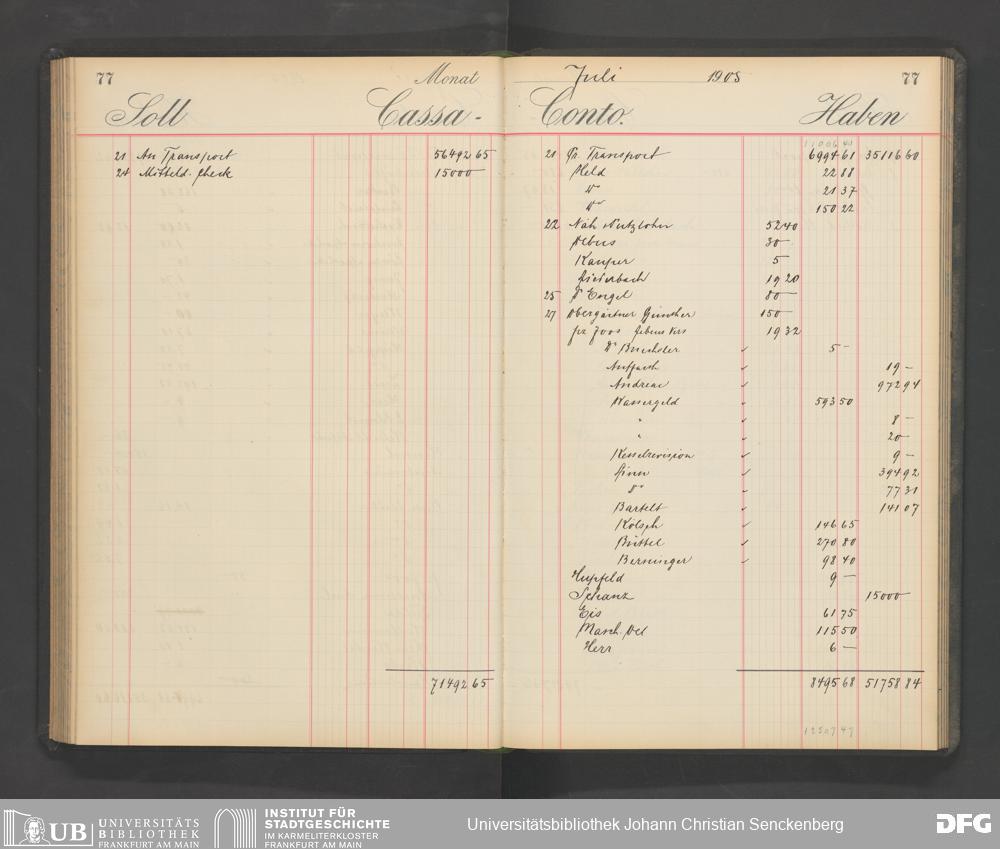 77
Monat
Soll
Cassa-
21 An Transport 56492 65
24 Mitteld. Check 15000 —
71492 65
Juli 1905
77
Conto.
Haben
11006 40
21 Pr. Transport 6994 61 35116 60
Held 22 88
do 21 37
do 150 22
22 52 40
Albus 30 —
Kauper 5
19 20
25 Dr Engel 80 —
27 Obergärtner Günther 150 —
19 32
5 —
19 —
Andreae 972 94
Wassergeld 593 50
" 8 —
" 20 —
Kesselrevision 9 —
394 92
do 77 31
Bartelt 141 07
Kölsch 146 65
Büttel 270 80
Berninger 98 40
Hupfeld 9 —
Schanz 15000 —
Eis 61 75
Masch. Oel 115 50
Herr 6 —
8495 68 51758 84
12507 47
UB
UNIVERSITÄTS
BIBLIOTHEK
FRANKFURT AM MAIN
INSTITUT FÜR
STADTGESCHICHTE
IM KARMELITERKLOSTER
FRANKFURT AM MAIN
Universitätsbibliothek Johann Christian Senckenberg
DFG